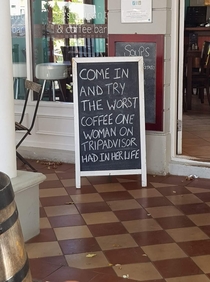 & coffee bar
COME IN
AND TRY
THE WORST
COFFEE ONE
WOMAN ON
TRIPADVISOR
HAD IN HER LIFE